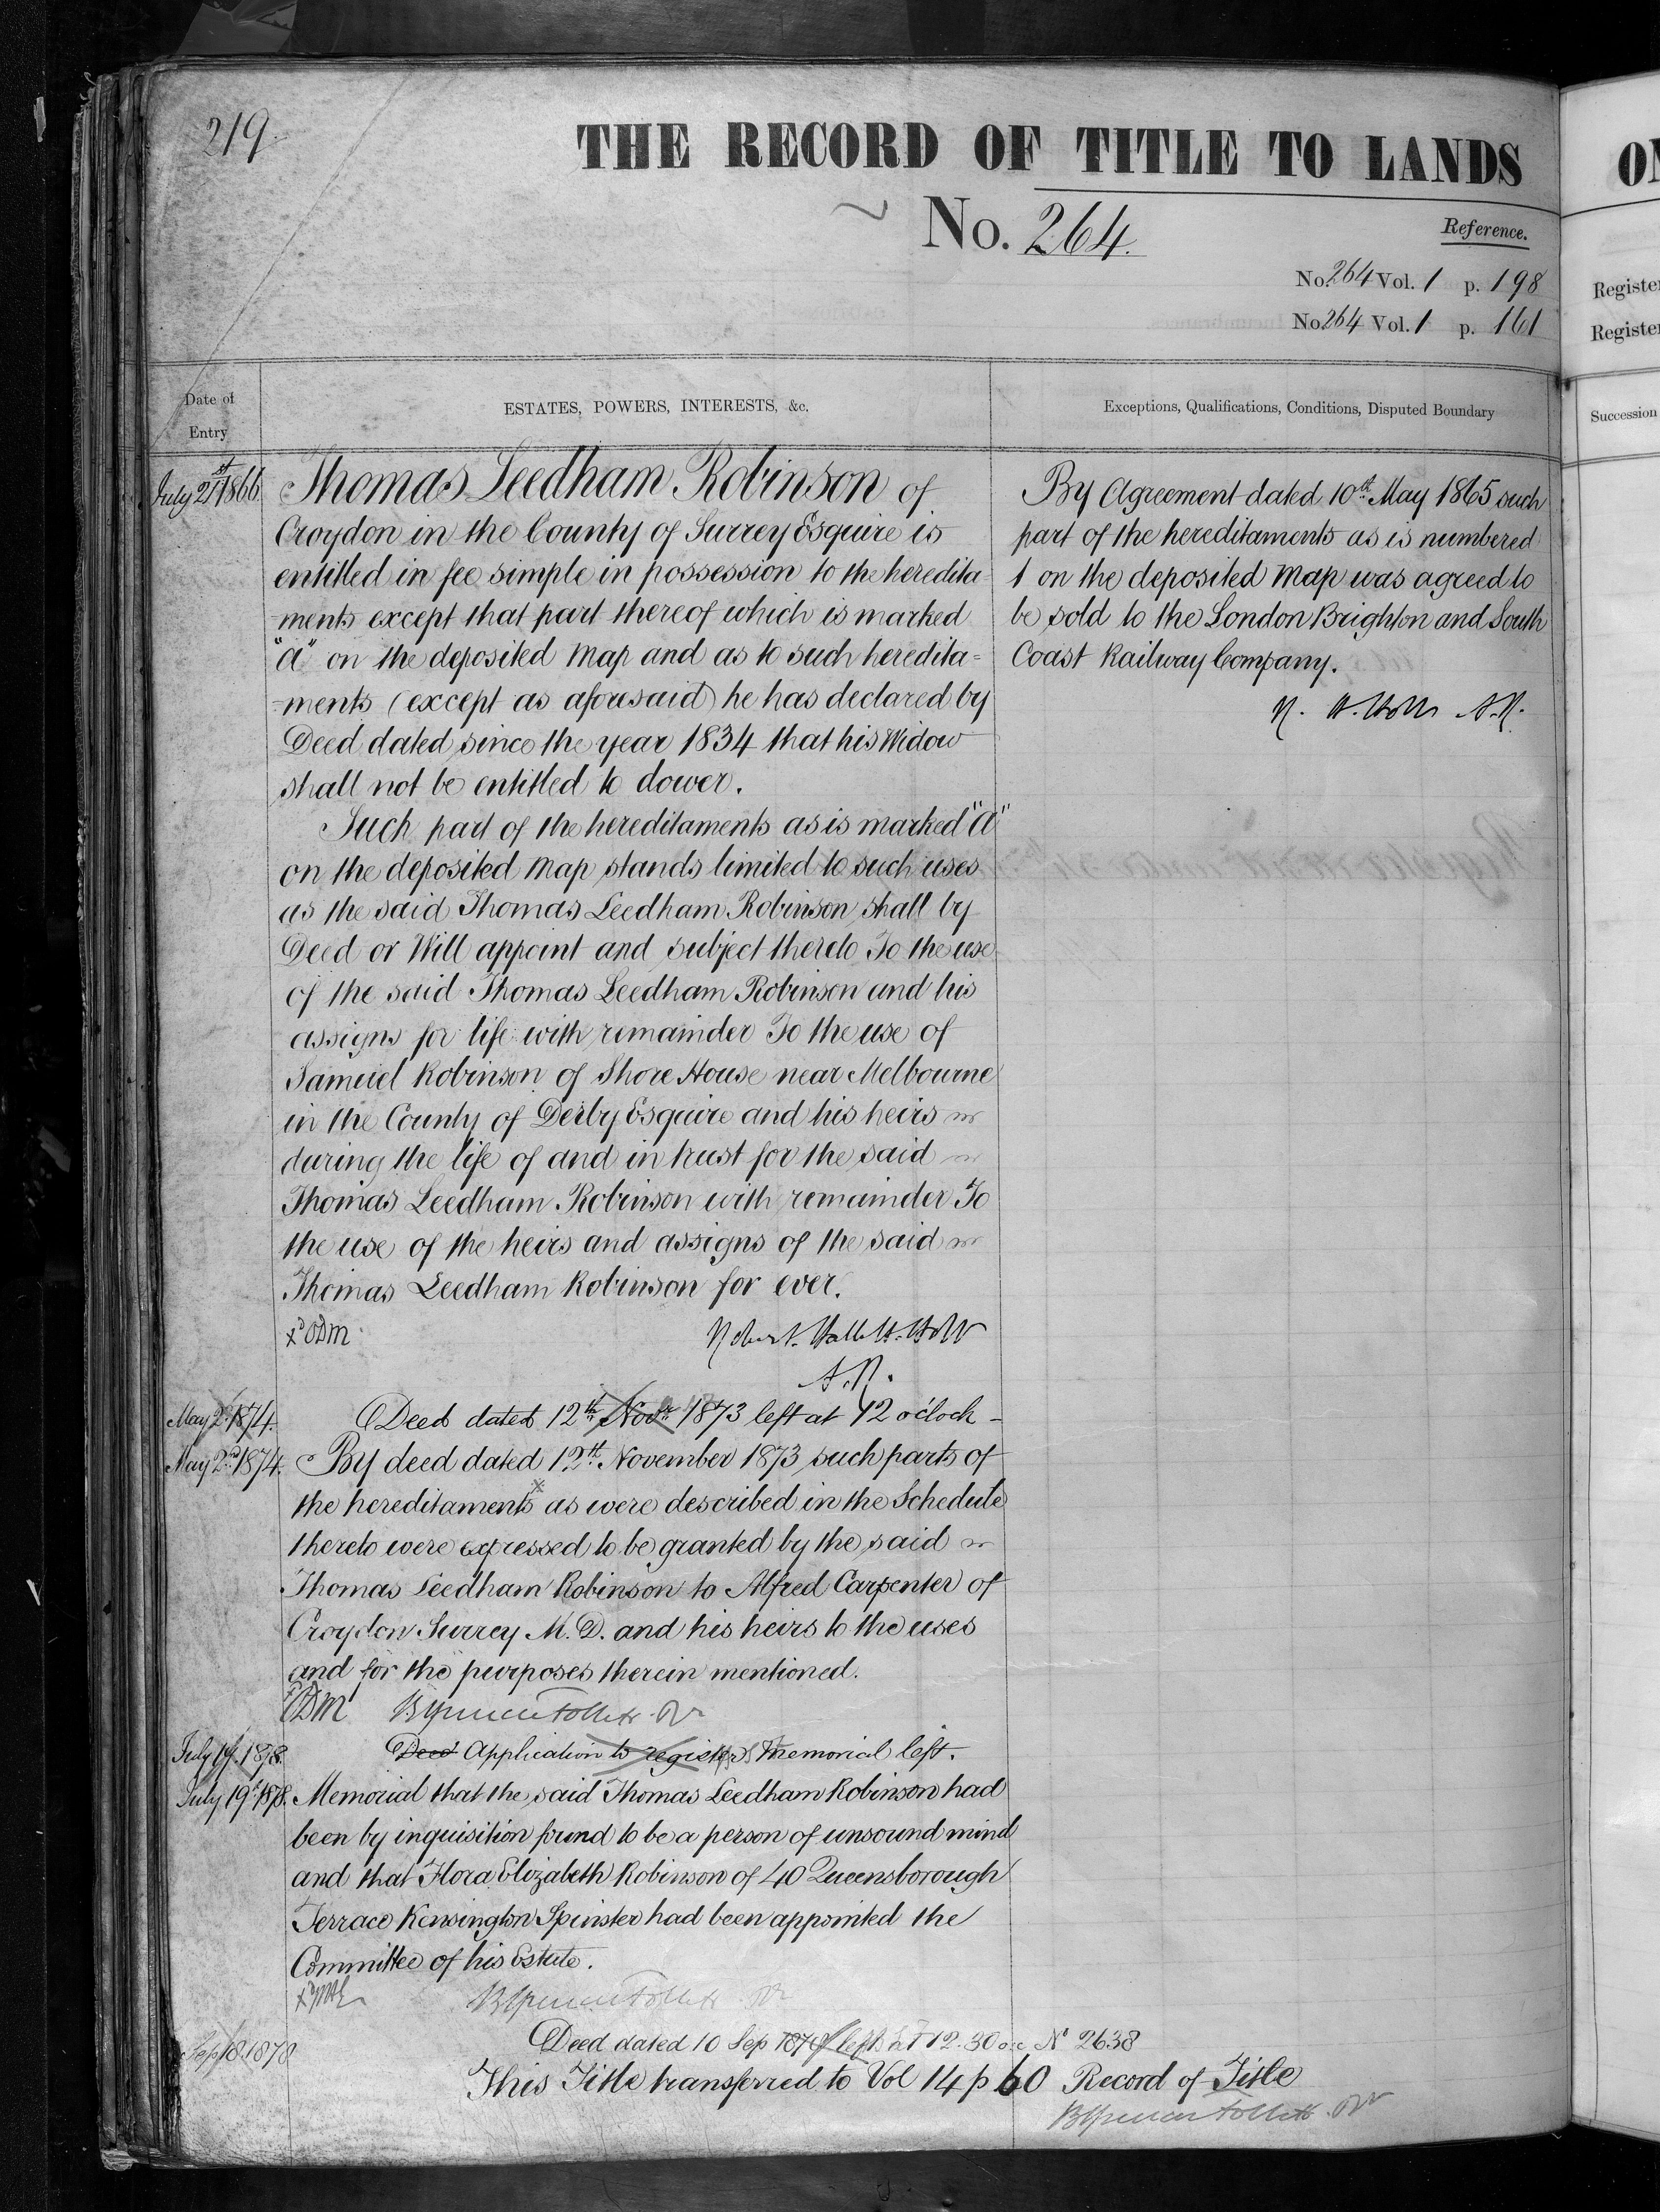 219
THE RECORD OF TITLE TO LANDS
No. 264.
Reference.
No. 264 Vol. 1 p. 198
No. 264 Vol. 1 p. 161
Register
Register
Date of
Entry
ESTATES, POWERS, INTERESTS, &c.
Exceptions, Qualifications, Conditions, Disputed Boundary
Succession
July 21st 1866
Thomas Leedham Robinson of
Croydon in the County of Surrey Esquire is
entitled in fee simple in possession to the heredita-
-ments except that part thereof which is marked
"A" on the deposited Map and as to such heredita=
=ments (except as aforesaid) he has declared by
Deed dated since the year 1834 that his Widow
shall not be entitled to dower.
Such part of the hereditaments as is marked "A"
on the deposited Map stands limited to such uses
as the said Thomas Leedham Robinson shall by
Deed or Will appoint and subject thereto To the use
of the said Thomas Leedham Robinson and his
assigns for life with remainder To the use of
Samuel Robinson of Shore House near Melbourne
in the County of Derby Esquire and his heirs
during the life of and in trust for the said
Thomas Leedham Robinson with remainder To
the use of the heirs and assigns of the said
Thomas Leedham Robinson for ever.
xd ODM
A.R.
By Agreement dated 10th May 1865 such
part of the hereditaments as is numbered
1 on the deposited Map was agreed to
be sold to the London Brighton and South
Coast Railway Company.
A.R.
May 2d 1874. Deed dated 12th Novr 1873 left at 12 o'clock -
May 2nd 1874. By deed dated 12th November 1873 such parts of
the hereditaments x as were described in the Schedule
thereto were expressed to be granted by the said
Thomas Leedham Robinson to Alfred Carpenter of
Croydon Surrey M.D. and his heirs to the uses
and for the purposes therein mentioned.
xd ODM
July 19. 1878. Deed Application to register Memorial left.
July 19th 1878. Memorial that the said Thomas Leedham Robinson had
been by inquisition found to be a person of unsound mind
and that Flora Elizabeth Robinson of 40 Queensborough
Terrace Kensington Spinster had been appointed the
Committee of his Estate.
Sep 18 1878 Deed dated 10 Sep 1878 left at 12.30 o.c No 2638
This Title transferred to Vol 14 p 60 Record of Title